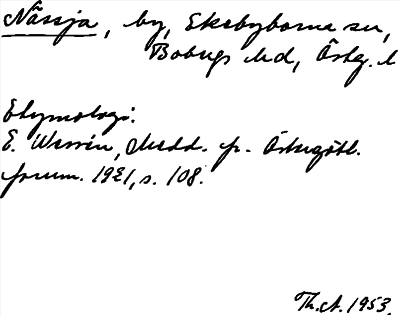 Nässja, by, Ekebyborna sn,
Bobergs hd, Östg. l
Etymologi:
E. Wessén, Medd. fr. Östergötl.
fornm. 1921, s. 108.
Th. A. 1953.